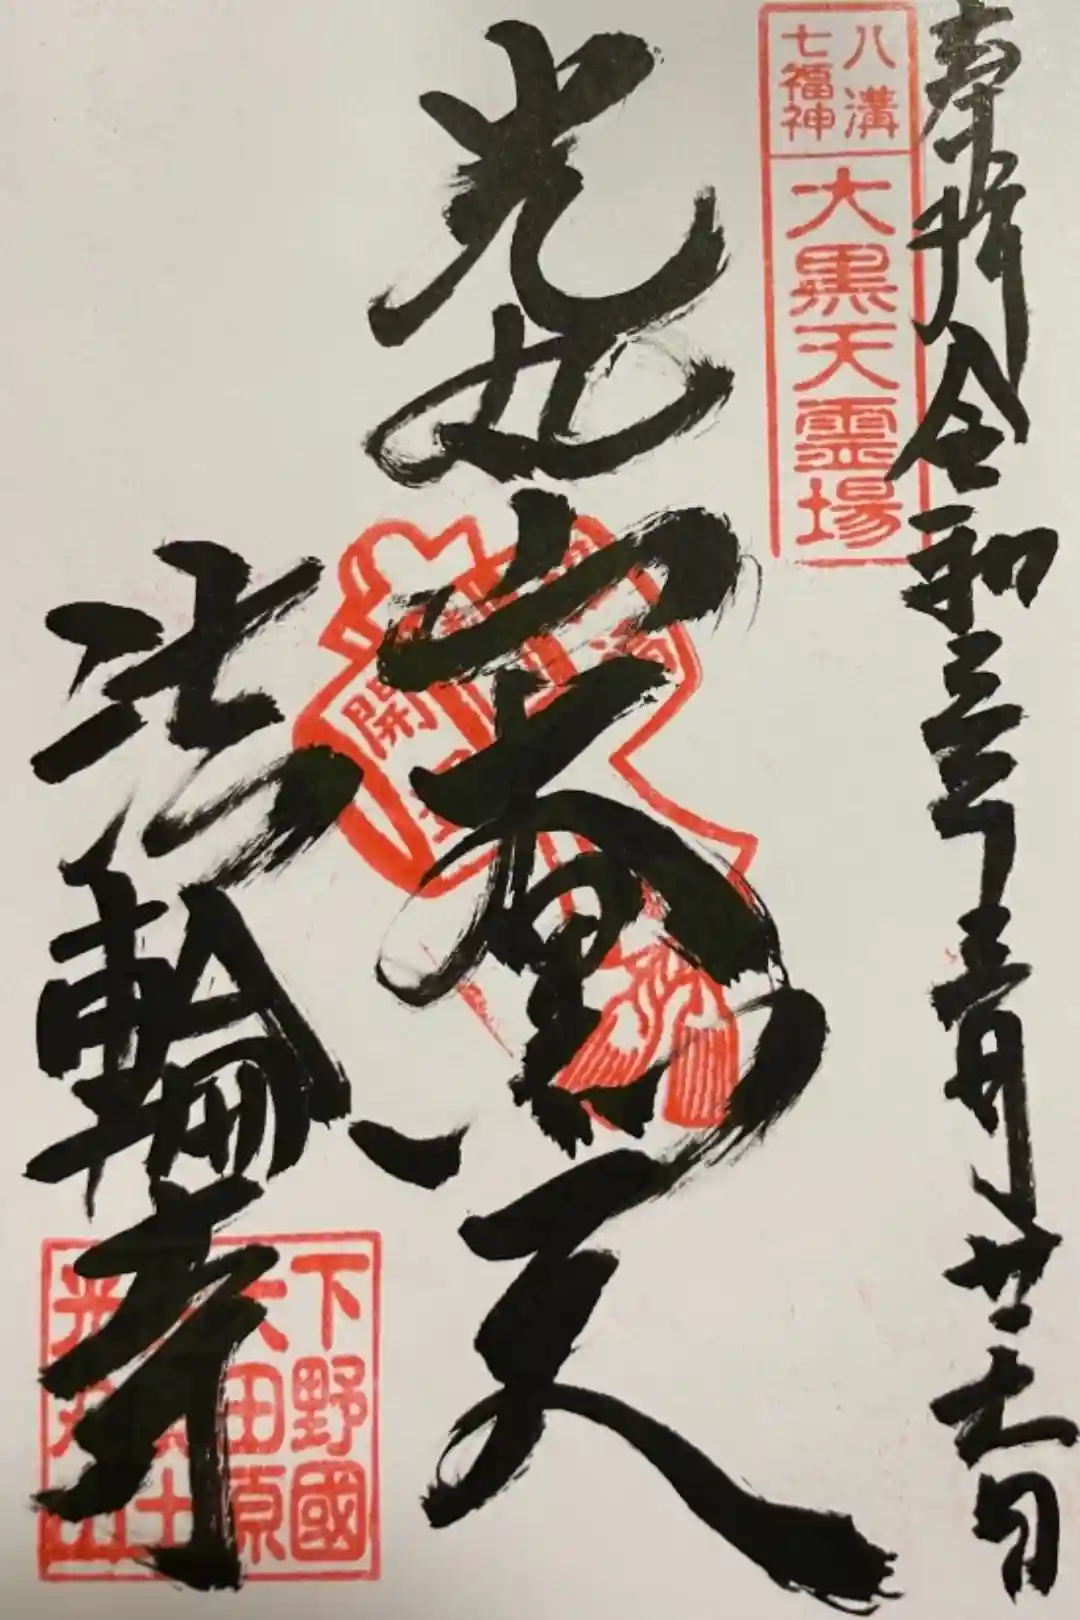 奉拝 令和三年三月廿七日
八溝
七福神
大黒天霊場
光丸山 大黒天
法輪寺
下野國
大田原
光丸山
開